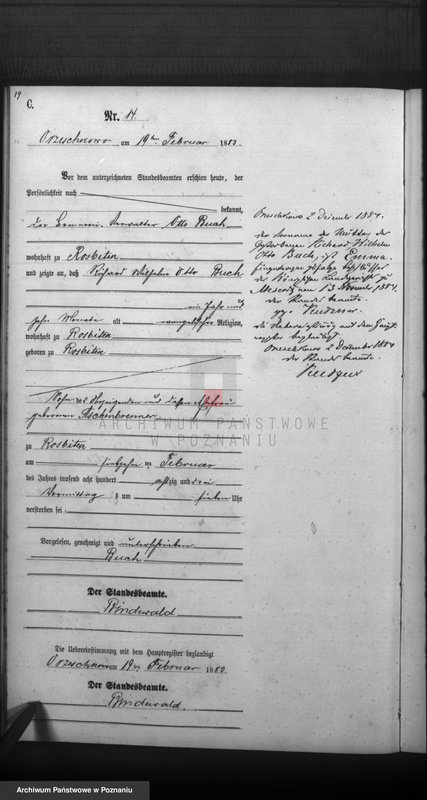 19
C.
Nr. 14
Orzeschkowo am 19ten Februar 1883.
Vor dem unterzeichneten Standesbeamten erschien heute, der
Persönlichkeit nach
bekannt,
der Verwalter Otto Buch
wohnhaft zu Rosbitek
und zeigte an, daß Richard Wilhelm Otto Buch
ein Jahr und
zehn Monate alt evangelischer Religion,
wohnhaft zu Rosbitek
geboren zu Rosbitek
Sohn des Anzeigenden und dessen Ehefrau
geborenen Aschenbrenner
zu Rosbitek
am siebzehnten Februar
des Jahres tausend acht hundert achtzig und drei
Vormittag s um sieben Uhr
verstorben sei
Vorgelesen, genehmigt und unterschrieben
Buch
Der Standesbeamte.
Bindewald
Die Uebereinstimmung mit dem Hauptregister beglaubigt
Orzeschkowo am 19ten Februar 1883.
Der Standesbeamte.
Bindewald.
Orzeschkowo 2 Dezember 1884.
der Vorname der Mutter des
Richard Wilhelm
Otto Buch, ist Emma.
zufolge
des Königlichen Landgerichts zu
Meseritz vom 13 1884.
der Standesbeamte
Orzeschkowo 2 Dezember 1884
der Standesbeamte.
ARCHIWUM PAŃSTWOWE
W POZNANIU
Archiwum Państwowe w Poznaniu